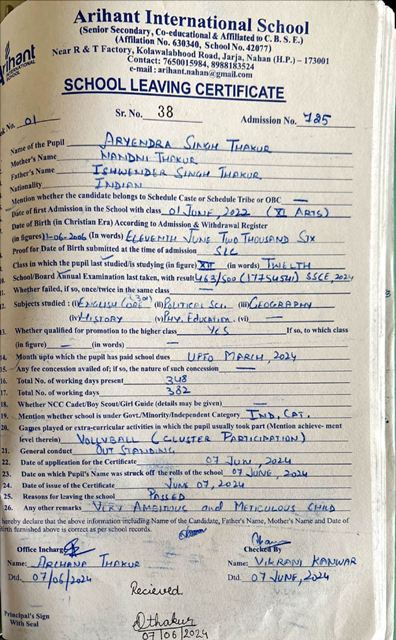 Arihant International School
(Senior Secondary, Co-educational & Affiliated to C. B. S. E.)
(Affilation No. 630340, School No. 42077)
Near R & T Factory, Kolawalabhood Road, Jarja, Nahan (H.P.) – 173001
Contact: 7650015984, 8988183524
e-mail : arihant.nahan@gmail.com
Arihant
INTERNATIONAL SCHOOL
SCHOOL LEAVING CERTIFICATE
No. 01 Sr. No. 38 Admission No. 725
Name of the Pupil ARYENDRA SINGH THAKUR
Mother's Name NANDNI THAKUR
Father's Name ISHWENDER SINGH THAKUR
Nationality INDIAN
Mention whether the candidate belongs to Schedule Caste or Schedule Tribe or OBC —
Date of first Admission in the School with class 01 JUNE, 2022 (XI ARTS)
Date of Birth (in Christian Era) According to Admission & Withdrawal Register
(in figures) 11-06-2006 (In words) ELEVENTH JUNE TWO THOUSAND SIX
Proof for Date of Birth submitted at the time of admission SLC
Class in which the pupil last studied/is studying (in figure) XII (in words) TWELTH
10. School/Board Annual Examination last taken, with result 463/500 (17754541) SSCE, 2024
Whether failed, if so, once/twice in the same class —
12. Subjects studied : (i) ENGLISH CORE (301) (ii) POLITICAL SCI. (iii) GEOGRAPHY
(iv) HISTORY (v) PHY. EDUCATION. (vi) —
13. Whether qualified for promotion to the higher class YES If so, to which class
(in figure) — (in words) —
14. Month upto which the pupil has paid school dues UPTO MARCH, 2024
15. Any fee concession availed of; if so, the nature of such concession —
16. Total No. of working days present 348
17. Total No. of working days 382
18. Whether NCC Cadet/Boy Scout/Girl Guide (details may be given) —
19. Mention whether school is under Govt./Minority/Independent Category IND. CAT.
20. Games played or extra-curricular activities in which the pupil usually took part (Mention achieve- ment
level therein) VOLLYBALL (CLUSTER PARTICIPATION)
21. General conduct OUT STANDING
22. Date of application for the Certificate 07 JUN, 2024
23. Date on which Pupil's Name was struck off the rolls of the school 07 JUNE, 2024
24. Date of issue of the Certificate JUNE 07, 2024
25. Reasons for leaving the school PASSED
26. Any other remarks VERY AMBITIOUS and METICULOUS CHILD
hereby declare that the above information including Name of the Candidate, Father's Name, Mother's Name and Date of
Birth furnished above is correct as per school records.
Office Incharge Checked By
Name: ARCHANA THAKUR Name: VIKRANT KANWAR
Dtd. 07/06/2024 Dtd. 07 JUNE, 2024
Recieved
Principal's Sign
With Seal
Dthakur
07/06/2024